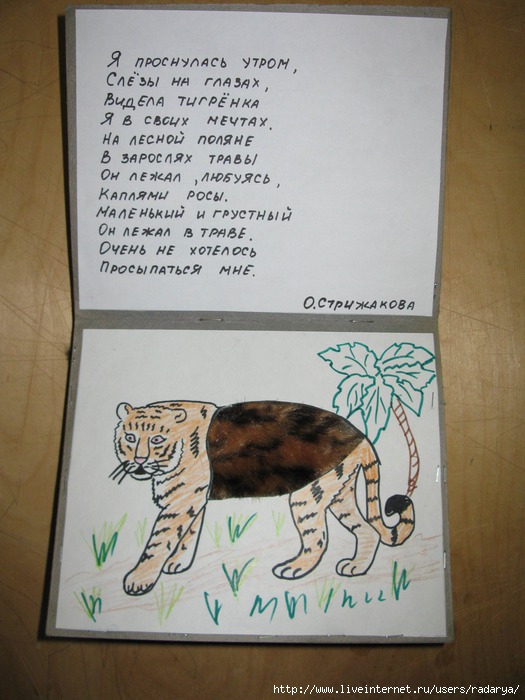 Я проснулась утром,
Слёзы на глазах,
Видела тигрёнка
Я в своих мечтах.
На лесной поляне
В зарослях травы
Он лежал, любуясь,
Каплями росы.
Маленький и грустный
Он лежал в траве.
Очень не хотелось
Просыпаться мне.
О.Стрижакова
http://www.liveinternet.ru/users/radarya/